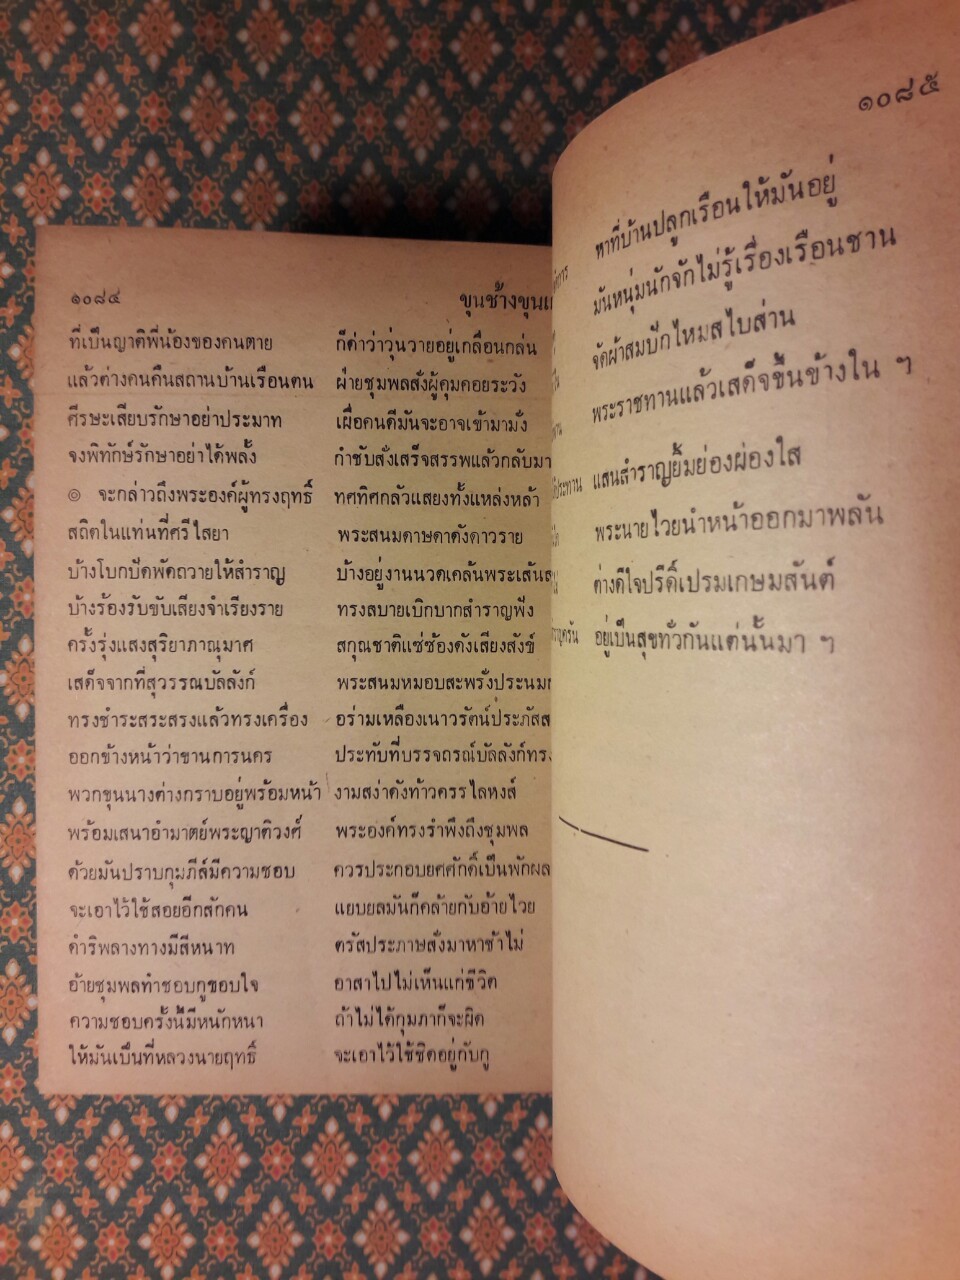 ๑๐๘๔ ขุนช้างขุนแ
ที่เป็นญาติพี่น้องของคนตาย ก็ด่าว่าวุ่นวายอยู่เกลื่อนกล่น
แล้วต่างคนคืนสถานบ้านเรือนตน ฝ่ายชุมพลสั่งผู้คุมคอยระวัง
ศีรษะเสียบรักษาอย่าประมาท เผื่อคนดีมันจะอาจเข้ามามั่ง
จงพิทักษ์รักษาอย่าได้พลั้ง กำชับสั่งเสร็จสรรพแล้วกลับมา
๏ จะกล่าวถึงพระองค์ผู้ทรงฤทธิ์ ทศทิศกลัวแสยงทั้งแหล่งหล้า
สถิตในแท่นที่ศรีไสยา พระสนมดาษดาดังดาวราย
บ้างโบกปัดพัดถวายให้สำราญ บ้างอยู่งานนวดเคล้นพระเส้นส
บ้างร้องรับขับเสียงจำเรียงราย ทรงสบายเบิกบากสำราญฟัง
ครั้งรุ่งแสงสุริยาภาณุมาศ สกุณชาติแซ่ซ้องดังเสียงสังข์
เสด็จจากที่สุวรรณบัลลังก์ พระสนมหมอบสะพรั่งประนม
ทรงชำระสระสรงแล้วทรงเครื่อง อร่ามเหลืองเนาวรัตน์ประภัสส
ออกข้างหน้าว่าขานการนคร ประทับที่บรรจถรณ์บัลลังก์ทรง
พวกขุนนางต่างกราบอยู่พร้อมหน้า งามสง่าดังท้าวครรไลหงส์
พร้อมเสนาอำมาตย์พระญาติวงศ์ พระองค์ทรงรำพึงถึงชุมพล
ด้วยมันปราบกุมภีล์มีความชอบ ควรประกอบยศศักดิ์เป็นพักผล
จะเอาไว้ใช้สอยอีกสักคน แยบยลมันก็คล้ายกับอ้ายไวย
ดำริพลางทางมีสีหนาท ตรัสประภาษสั่งมาหาช้าไม่
อ้ายชุมพลทำชอบกูขอบใจ อาสาไปไม่เห็นแก่ชีวิต
ความชอบครั้งนี้มีหนักหนา ถ้าไม่ได้กุมภาก็จะผิด
ให้มันเป็นที่หลวงนายฤทธิ์ จะเอาไว้ใช้ชิดอยู่กับกู
๑๐๘๕
หาที่บ้านปลูกเรือนให้มันอยู่
มันหนุ่มนักจักไม่รู้เรื่องเรือนชาน
จัดผ้าสมปักไหมสไบส่าน
พระราชทานแล้วเสด็จขึ้นข้างใน ฯ
แสนสำราญยิ้มย่องผ่องใส
พระนายไวยนำหน้าออกมาพลัน
ต่างดีใจปรีดิ์เปรมเกษมสันต์
อยู่เป็นสุขทั่วกันแต่นั้นมา ฯ